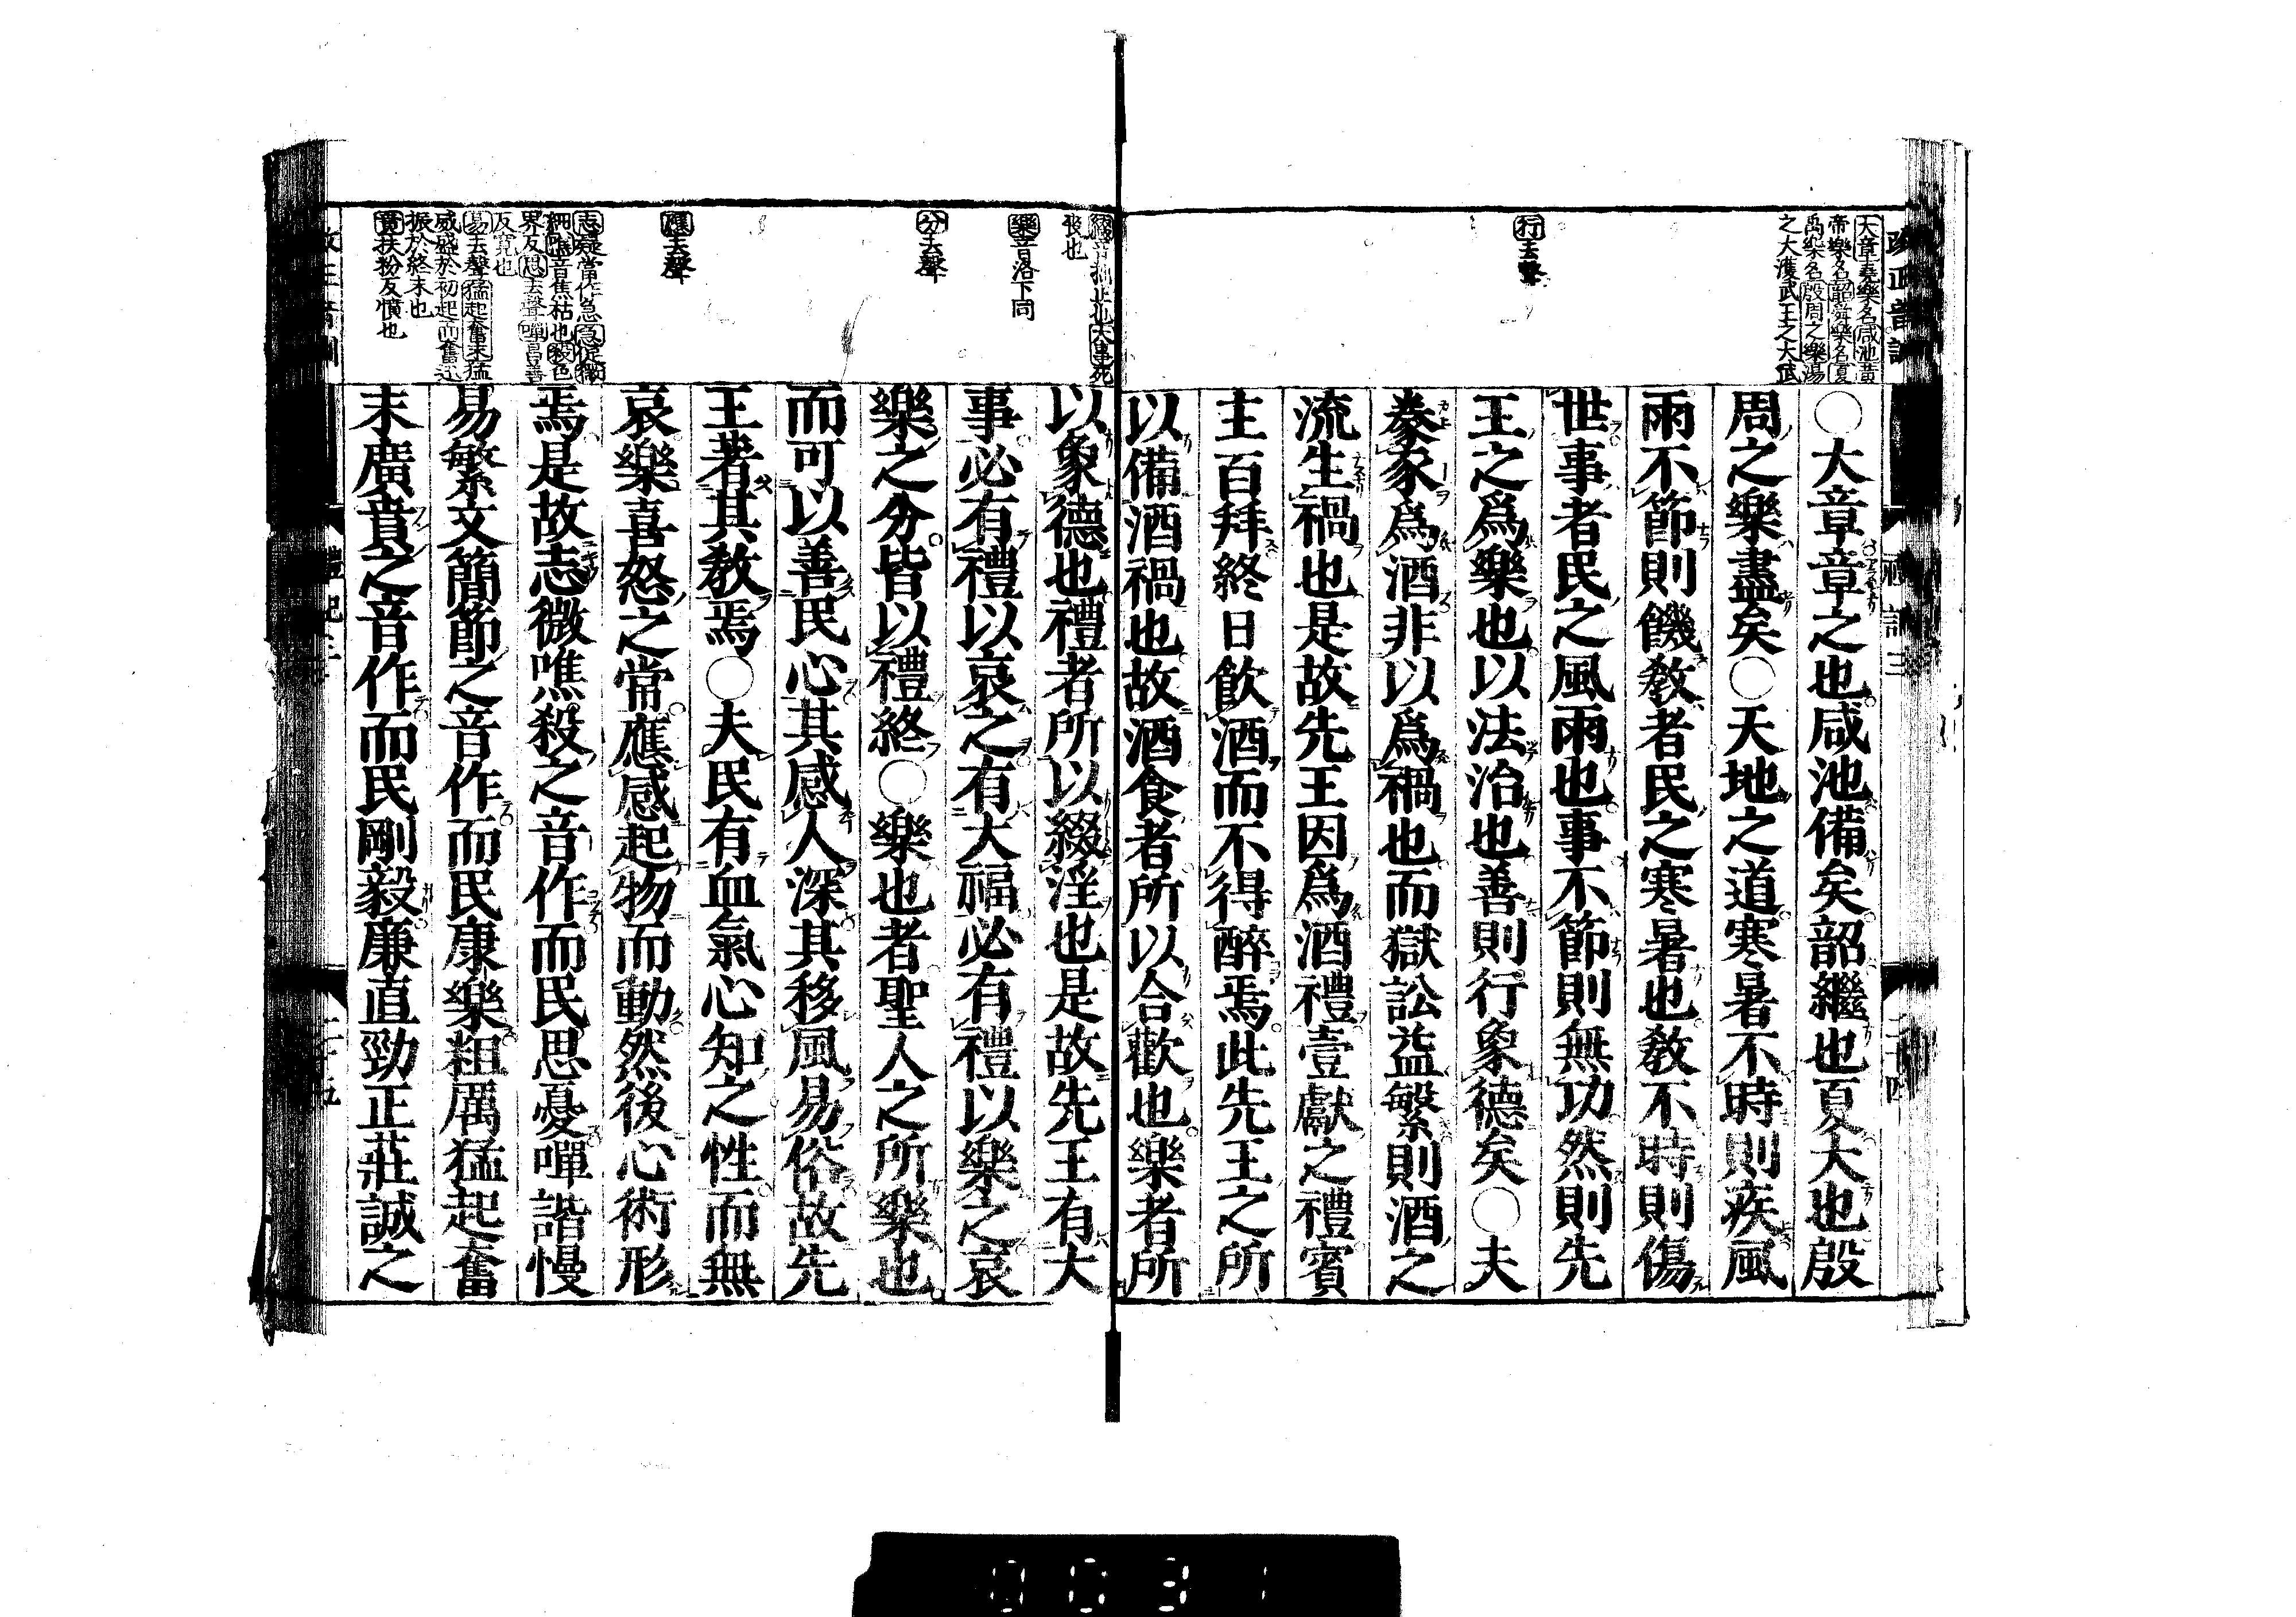 大章堯樂名咸池黄
帝樂名韶舜樂名夏
禹樂名殷周之樂湯
之大濩武王之大武
行去聲
○大章章之也咸池備矣韶繼也夏大也殷
周之樂盡矣○天地之道寒暑不時則疾風
雨不節則饑教者民之寒暑也教不時則傷
世事者民之風雨也事不節則無功然則先
王之爲樂也以法治也善則行象德矣○夫
豢豕爲酒非以爲禍也而獄訟益繁則酒之
流生禍也是故先王因爲酒禮壹獻之禮賓
主百拜終日飲酒而不得醉焉此先王之所
以備酒禍也故酒食者所以合歡也樂者所
止也大事死
喪也
樂音洛下同
分去聲
應去聲
志疑當作急
音焦枯也殺色
界反思去聲嘽昌善
反寛也
易去聲猛起奮末猛
威盛於初起而奮迅
振於終末也
賁扶粉反憤也
以象德也禮者所以綴淫也是故先王有大
事必有禮以哀之有大福必有禮以樂之哀
樂之分皆以禮終○樂也者聖人之所樂也
而可以善民心其感人深其移風易俗故先
王著其教焉○夫民有血氣心知之性而無
哀樂喜怒之常應感起物而動然後心術形
焉是故志微噍殺之音作而民思憂嘽諧慢
易繁文簡節之音作而民康樂粗厲猛起奮
末廣賁之音作而民剛毅廉直勁正莊誠之
0031